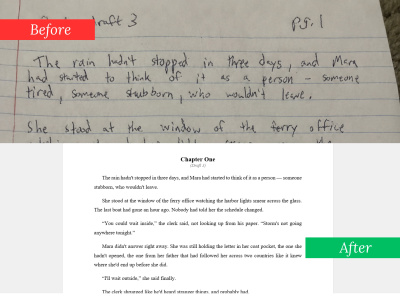 Before
draft 3
pg. 1
The rain hadn't stopped in three days, and Mara
had started to think of it as a person – someone
tired, someone stubborn, who wouldn't leave.
She stood at the window of the ferry office
Chapter One
(Draft 3)
The rain hadn't stopped in three days, and Mara had started to think of it as a person — someone
stubborn, who wouldn't leave.
She stood at the window of the ferry office watching the harbor lights smear across the glass.
The last boat had gone an hour ago. Nobody had told her the schedule changed.
“You could wait inside,” the clerk said, not looking up from his paper. “Storm's not going
anywhere tonight.”
Mara didn't answer right away. She was still holding the letter in her coat pocket, the one she
hadn't opened, the one from her father that had followed her across two countries like it knew
where she'd end up before she did.
“I'll wait outside,” she said finally.
The clerk shrugged like he'd heard stranger things, and probably had.
After